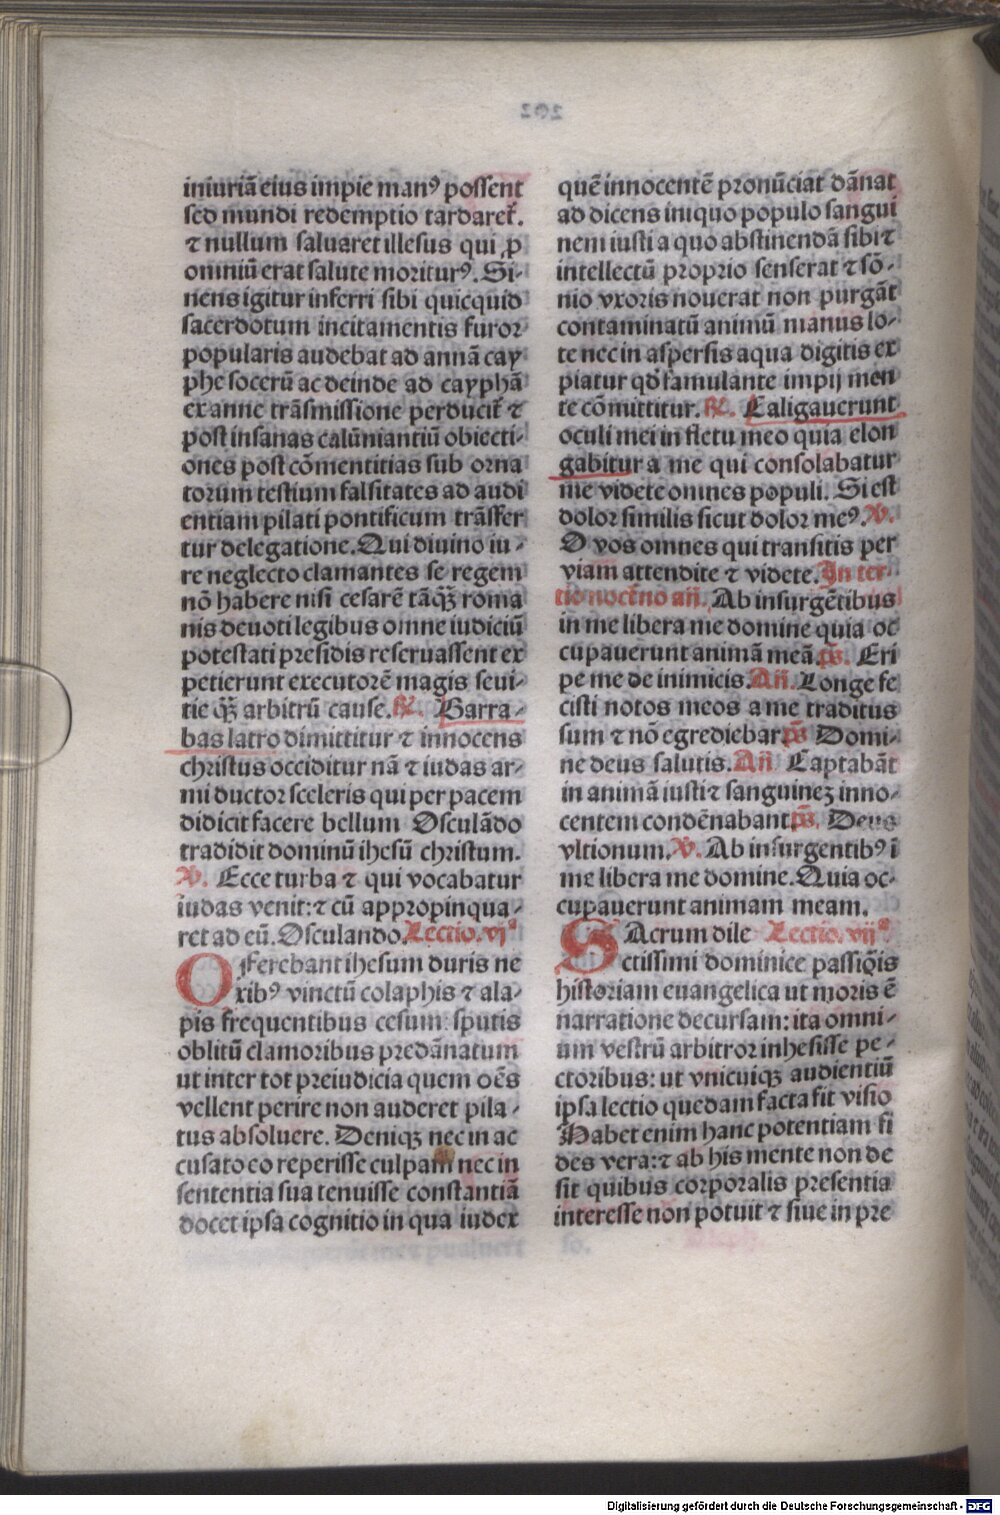 iniuriã eius impie manꝰ possent
sed mundi redemptio tardaret᷑.
⁊ nullum saluaret illesus qui ꝓ
omniũ erat salute moriturꝰ. Si-
nens igitur inferri sibi quicquid
sacerdotum incitamentis furor
popularis audebat ad annã cay
phe socerũ ac deinde ad cayphã
ex anne trãsmissione perducit᷑ ⁊
post insanas calũniantiũ obiecti-
ones post cõmentitias sub orna
torum testium falsitates ad audi
entiam pilati pontificum trãsfer
tur delegatione. Qui diuino iu-
re neglecto clamantes se regem
nõ habere nisi cesarẽ tãqꝫ̃ roma
nis deuoti legibus omne iudiciũ
potestati presidis reseruassent ex
petierunt executorẽ magis seui-
tie qꝫ̃ arbitrũ cause. ℟. Barra-
bas latro dimittitur ⁊ innocens
christus occiditur nã ⁊ iudas ar-
mi ductor sceleris qui per pacem
didicit facere bellum Osculãdo
tradidit dominũ ihesũ christum.
℣. Ecce turba ⁊ qui vocabatur
iudas venit: ⁊ cũ appropinqua-
ret ad eũ. Osculando. Lectio. vjᵃ
OFferebant ihesum duris ne
xibꝰ vinctũ colaphis ⁊ ala-
pis frequentibus cesum: sputis
oblitũ clamoribus predãnatum
ut inter tot preiudicia quem oẽs
vellent perire non auderet pila-
tus absoluere. Deniqꝫ nec in ac
cusato eo reperisse culpam nec in
sententia sua tenuisse constantiã
docet ipsa cognitio in qua iudex
quẽ innocentẽ pronũciat dãnat
ad dicens iniquo populo sangui
nem iusti a quo abstinendã sibi ⁊
intellectũ proprio senserat ⁊ sõ-
nio vxoris nouerat non purgãt
contaminatũ animũ manus lo-
te nec in aspersis aqua digitis ex
piatur qđ famulante impij men
te cõmittitur. ℟. Caligauerunt
oculi mei in fletu meo quia elon
gabitur a me qui consolabatur
me videte omnes populi. Si est
dolor similis sicut dolor meꝰ. ℣.
O vos omnes qui transitis per
viam attendite ⁊ videte. In ter-
tio noct᷑no añ. Ab insurgẽtibus
in me libera me domine quia oc
cupauerunt animã meã. p̃s. Eri
pe me de inimicis. Añ. Longe fe
cisti notos meos a me traditus
sum ⁊ nõ egrediebar p̃s Domi-
ne deus salutis. Añ Captabãt
in animã iusti ⁊ sanguinez inno-
centem condẽnabant p̃s. Deus
vltionum. ℣. Ab insurgentibꝰ ĩ
me libera me domine. Quia oc-
cupauerunt animam meam.
SAcrum dile Lectio. vijᵃ
ctissimi dominice passiõis
historiam euangelica ut moris ẽ
narratione decursam: ita omni-
um vestrũ arbitror inhesisse pe-
ctoribus: ut vnicuiqꝫ audientiũ
ipsa lectio quedam facta fit visio
Habet enim hanc potentiam fi
des vera: ⁊ ab his mente non de
sit quibus corporalis presentia
interesse non potuit ⁊ siue in pre
Digitalisierung gefördert durch die Deutsche Forschungsgemeinschaft - DFG